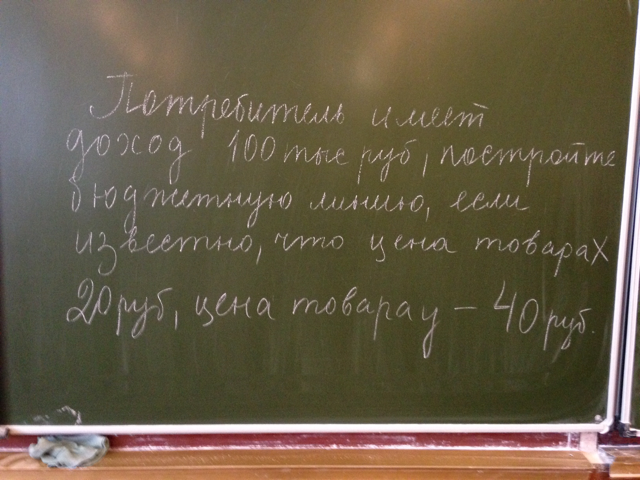 Потребитель имеет
доход 100 тыс руб, постройте
бюджетную линию, если
известно, что цена товара х
20 руб, цена товара у – 40 руб.